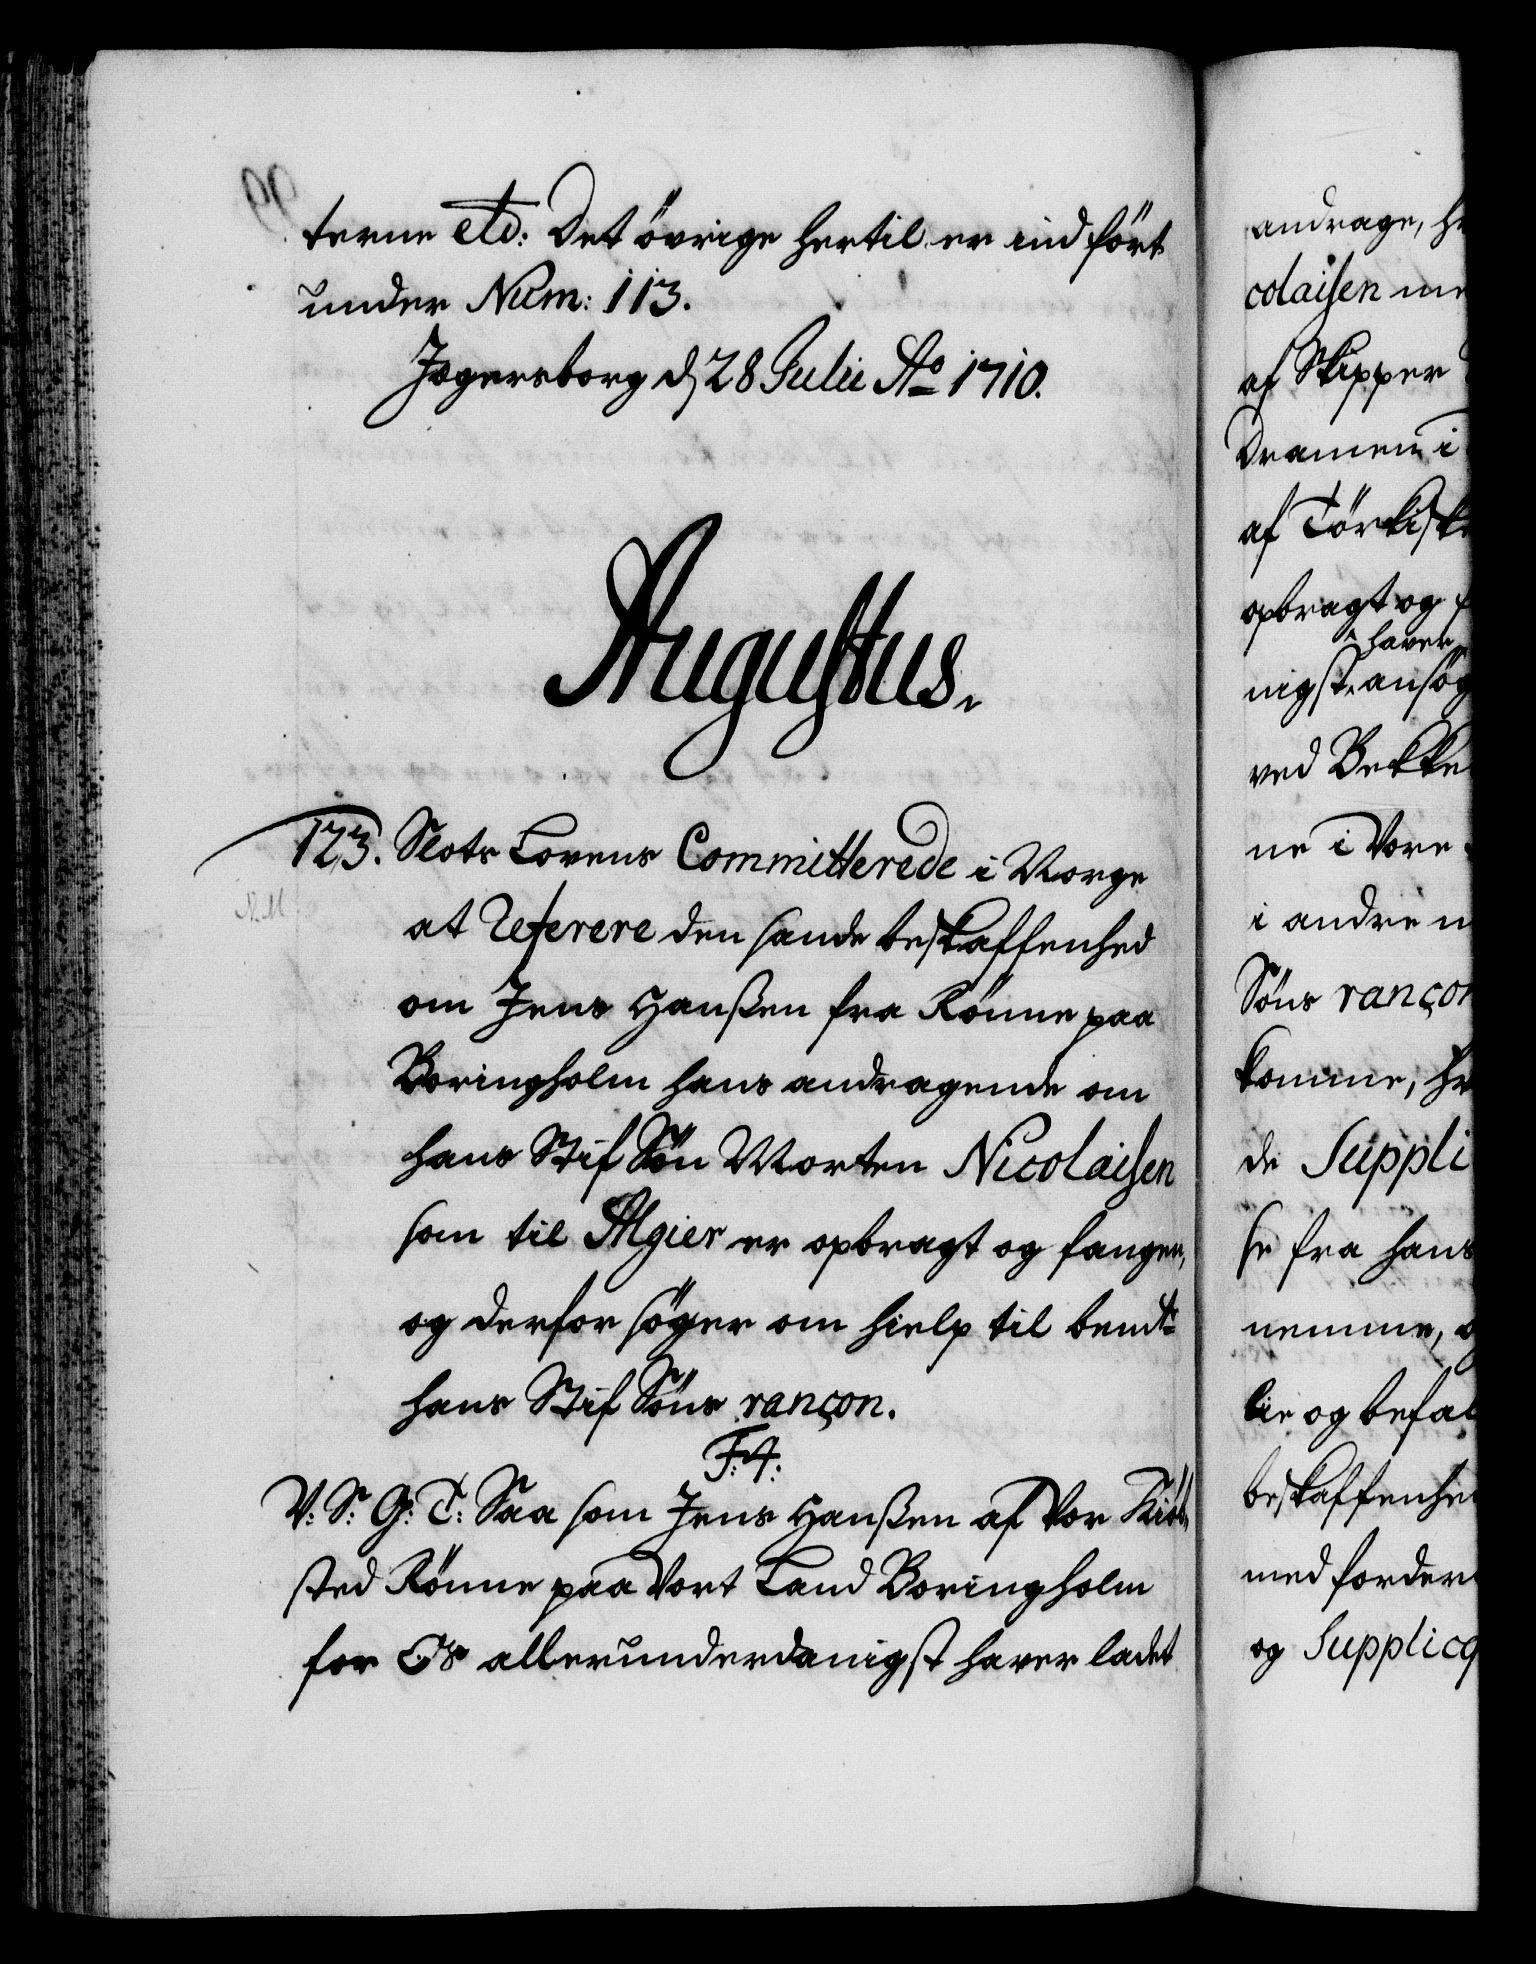 terne etc: Det övrige hertil er indfört
under Num: 113.
Jegersborg d 28 Julii Ao 1710.
Augustus.
123. Slots Lovens Committerede i Norge
N.M
at referere den sande beskaffenhed
om Jens Hanßen fra Rönne paa
Boringholm hans andragende om
hans Stif Sön Morten Nicolaisen
som til Algier er opbragt og fangen,
og derfor söger om hielp til bemte
hans Stif Söns rançon.
F: 4:
V: S: G: T: Saa som Jens Hanßen af Vor Kiöb,
sted Rönne paa Vort Land Boringholm
for Os allerunderdanigst haver ladet
andrage, h
colaisen me
af Skipper
Dramen i
af Törkisk
opbragt og f
haver
nigst ansög
ved Bekke
ne i Vore
i andre
Söns rançon
komme, h
de Suppli
se fra hans
nemme, o
lie og befal
beskaffenhe
med forder
og Supplicq